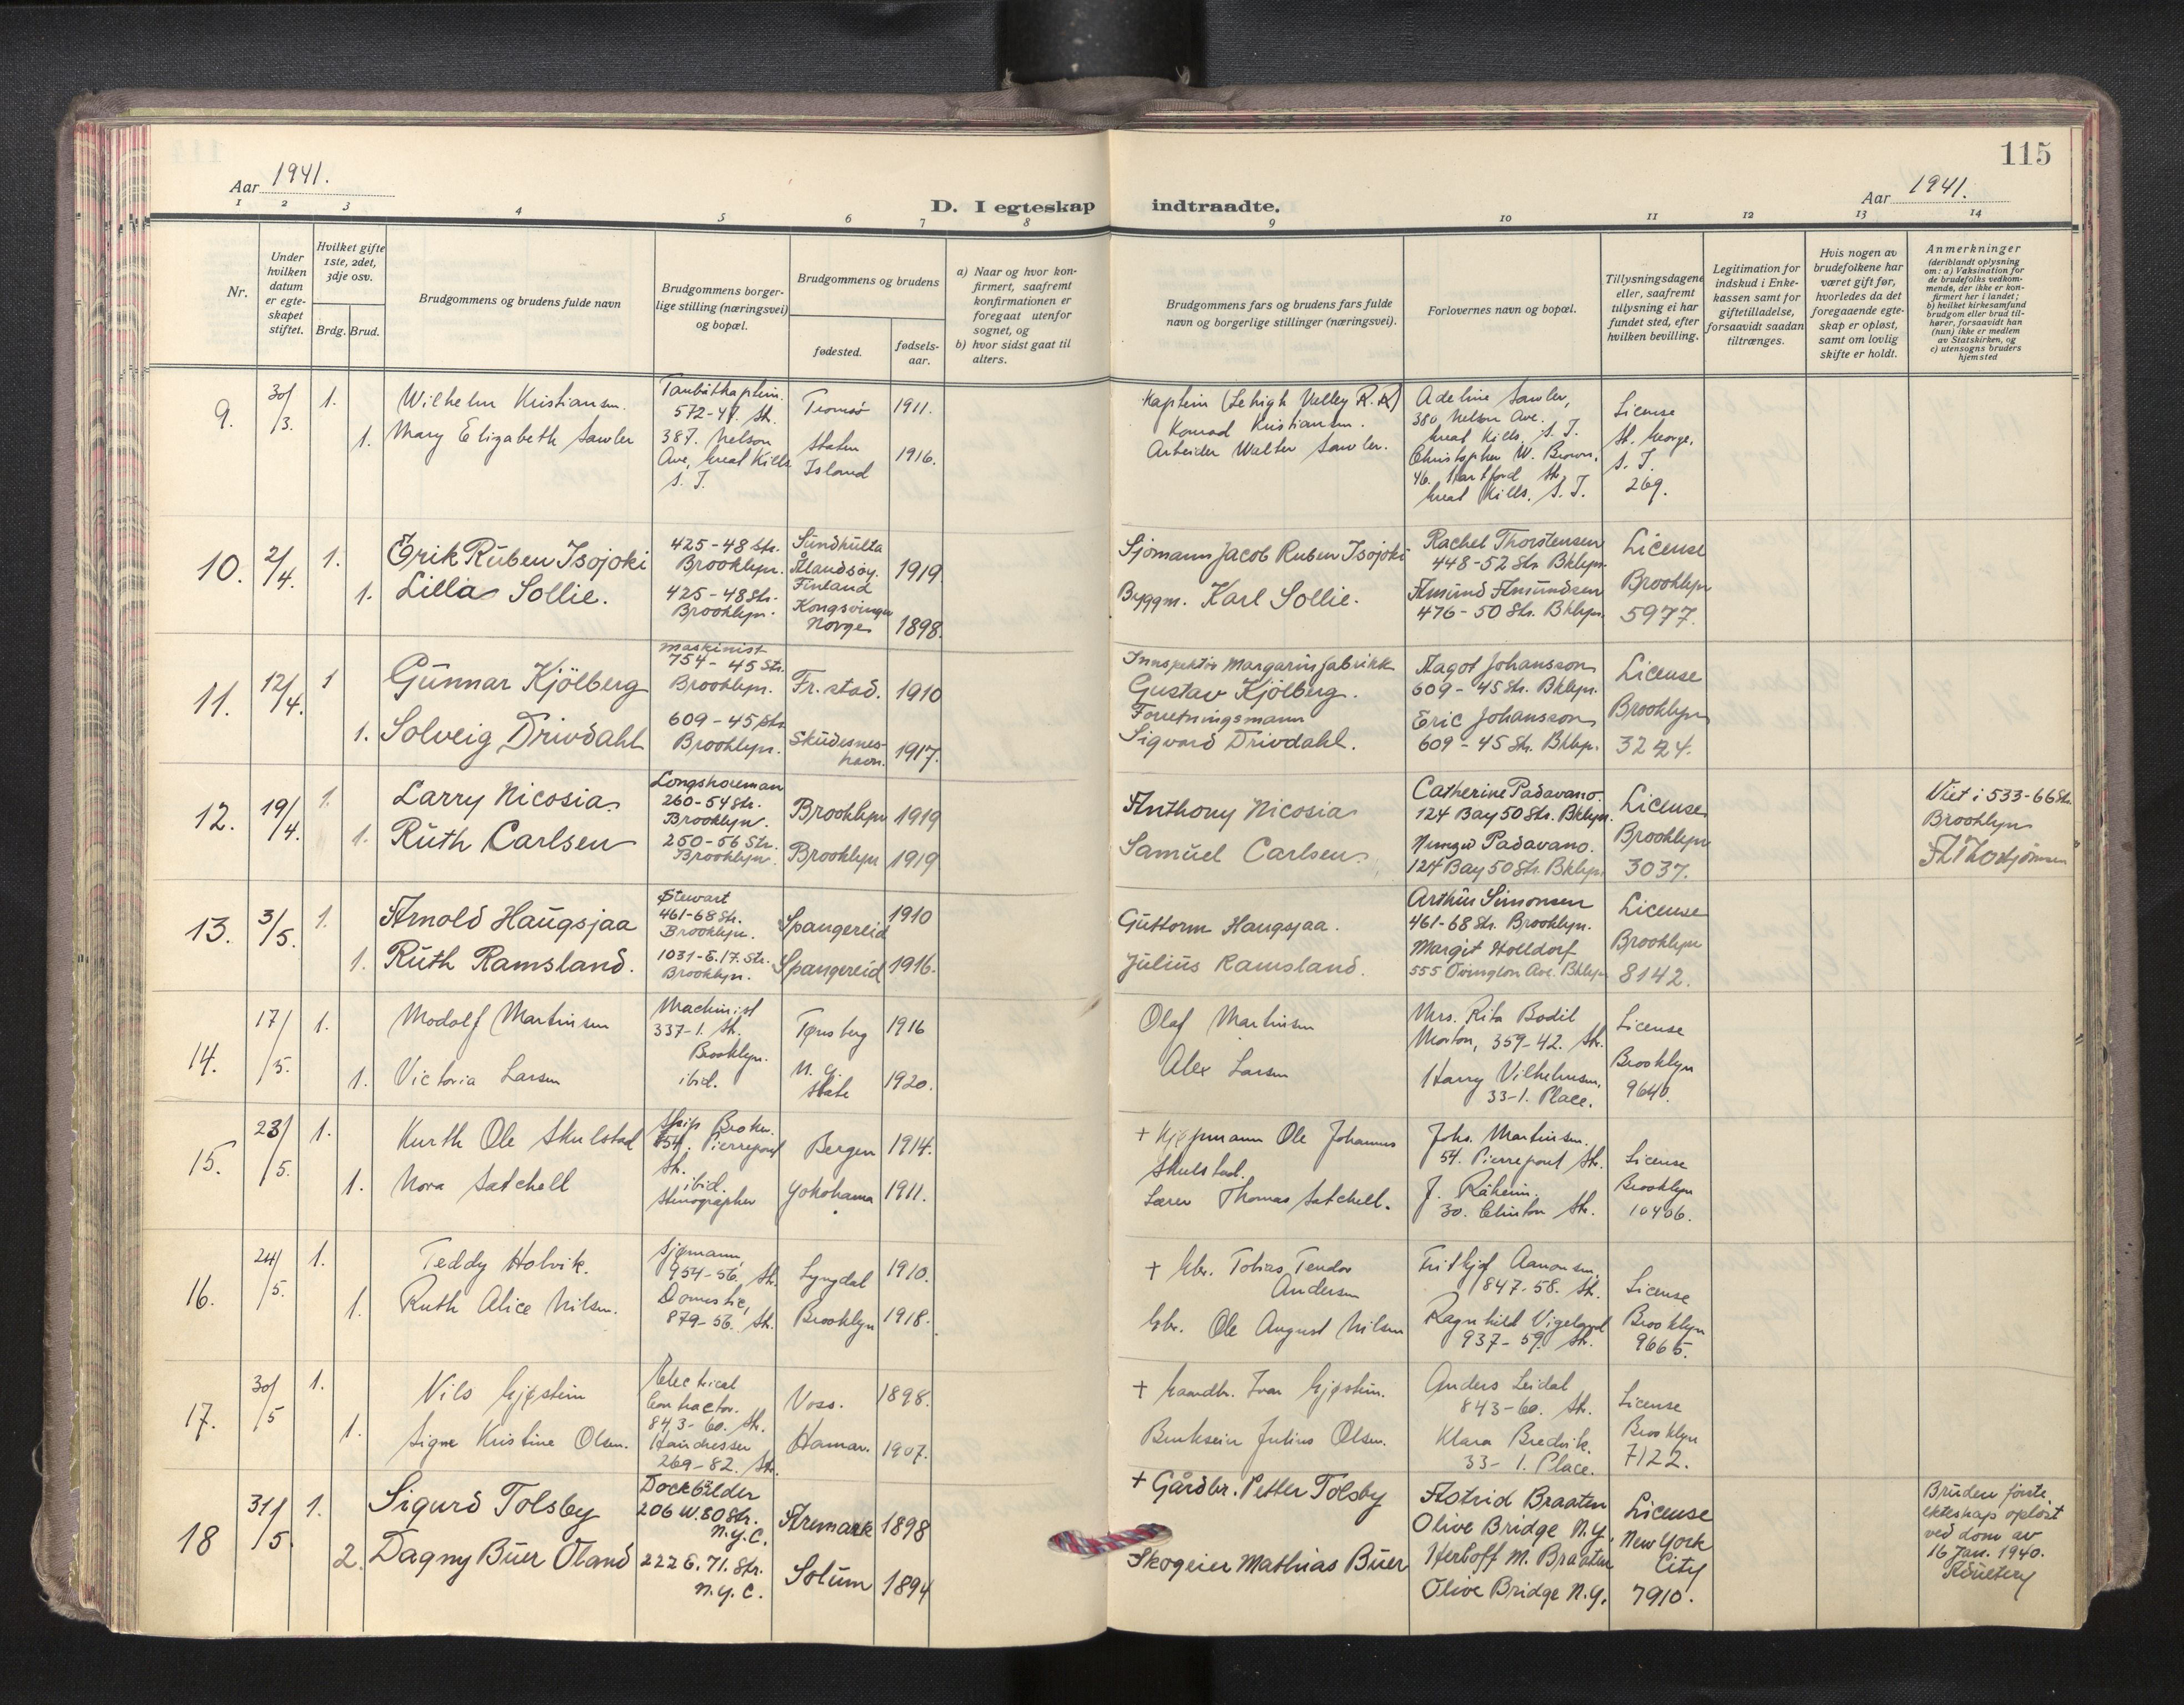 115
Aar 1941.
Aar 1941.
D. I egteskap indtraadte.
1 2 3 4 5 6 7 8 9 10 11 12 13 14
Nr.
Under hvilken datum er egte-skapet stiftet.
Hvilket gifte 1ste, 2det, 3dje osv.
Brdg. Brud.
Brudgommens og brudens fulde navn
Brudgommens borger-lige stilling (næringsvei) og bopæl.
Brudgommens og brudens
fødested.
fødsels-aar.
a) Naar og hvor kon-firmert, saafremt konfirmationen er foregaat utenfor sognet, og
b) hvor sidst gaat til alters.
Brudgommens fars og brudens fars fulde navn og borgerlige stillinger (næringsvei).
Forlovernes navn og bopæl.
Tillysningsdagene eller, saafremt tillysning ei har fundet sted, efter hvilken bevilling.
Legitimation for indskud i Enke-kassen samt for giftetilladelse, forsaavidt saadan tiltrænges.
Hvis nogen av brudefolkene har været gift før, hvorledes da det foregaaende egte-skap er opløst, samt om lovlig skifte er holdt.
Anmerkninger (deriblandt oplysning om: a) Vaksination for de brudefolks vedkom-mende, der ikke er kon-firmert her i landet; b) hvilket kirkesamfund brudgom eller brud til-hører, forsaavidt han (hun) ikke er medlem av Statskirken, og c) utensogns bruders hjemsted
9. 30/3. 1. Wilhelm Kristiansen. Taubåtkaptein. 572-47. St. Tromsø 1911. Kaptein (Lehigh Velley R.R) Konrad Kristiansen. Adeline Sawler, 380, Nelson Ave. Great Kills, S. I. License St. George, S. I. 269.
1. Mary Elizabeth Sawler 387. Nelson Ave, Great Kills S. I. Staten Island 1916. Arbeider Walter Sawler. Christopher W. Brown, 46. Hartford St. Great Kills, S. I.
10. 2/4. 1. Erik Ruben Isojoki 425-48 Str. Brooklyn. Sundhulta Ålandsøy. Finland 1919 Sjømann Jacob Ruben Isojoki Rachel Thorstensen 448-52 Str. Bklyn. License Brooklyn 5977.
1. Lilla Sollie. 425-48 Str. Brooklyn. Kongsvinger Norge 1898. Byggm. Karl Sollie. Amund Amundsen 476-50 Str. Bklyn.
11. 12/4. 1 Gunnar Kjölberg maskinist 754-45 Str. Brooklyn. Fr.stad. 1910 Innspektör Margarinfabrikk Gustav Kjölberg. Aagot Johansson 609-45 Str. Bklyn. License Brooklyn 3224.
1. Solveig Drivdahl 609-45 Str. Brooklyn. Skudesnes-havn. 1917. Forretningsmann Sigvard Drivdahl. Eric Johansson 609-45 Str. Bklyn.
12. 19/4. 1. Larry Nicosia. Longshoreman 260-54 Str. Brooklyn. Brooklyn 1919 Anthony Nicosia Catherine Padavano. 124 Bay 50 Str. Bklyn. License Brooklyn 3037. Viet i 533-66 Str. Brooklyn
1. Ruth Carlsen 250-56 Str. Brooklyn. Brooklyn 1919 Samuel Carlsen. Padavano. 124 Bay 50 Str. Bklyn
13. 3/5. 1. Arnold Haugsjaa Stewart 461-68 Str. Brooklyn. Spangereid 1910 Guttorm Haugsjaa. Arthur Simonsen 461-68 Str. Brooklyn. License Brooklyn 8142.
1. Ruth Ramsland. 1031-E.17. Str. Brooklyn. Spangereid 1916. Julius Ramsland. Margit Holldorf 555 Ovington Ave. Bklyn
14. 17/5. 1. Modolf Martinsen Machinist 337-1. St. Brooklyn. Tønsberg 1916 Olaf Martinsen Mrs. Rita Bodil Morton, 359-42. Str. License Brooklyn 9640.
1. Victoria Larsen ibid. N. Y. State 1920. Alex Larsen Harry Vilhelmsen, 33-1. Place.
15. 23/5. 1. Kurth Ole Skulstad Ships Broker. 54. Pierrepont St. Bergen 1914. + Kjøpmann Ole Johannes Skulstad. Johs. Martinsen. 54. Pierrepont St. License Brooklyn 10406.
1. Nora Satchell ibid. Stenographer Yokohama 1911. Lærer Thomas Satchell. J. Råheim. 30. Clinton St.
16. 24/5. 1. Teddy Holvik. Sjømann, 954-56. St. Lyngdal 1910. + Gbr. Tobias Teodor Andersen Frithjof Aanonsen, 847-58. St. License Brooklyn 9665.
1. Ruth Alice Nilsen. Domestic, 879-56. St. Brooklyn 1918. Gbr. Ole August Nilsen Ragnhild Vigeland 937-59. St.
17. 30/5 1. Nils Gjøstein Electrical Contractor. 843-60. St. Voss. 1898. + Gaardbr. Ivar Gjøstein. Anders Leidal 843-60. St. License Brooklyn 7122.
1. Signe Kristine Olsen. Hairdresser 269-82. St. Hamar. 1907. Brukseier Julius Olsen. Klara Bredvik. 33-1. Place.
18 31/5. 1. Sigurd Tolsby Dockbilder 206 W. 80 Str. N.Y.C. Aremark 1898 + Gårdbr. Petter Tolsby Astrid Braaten Olive Bridge N.Y. License New York City 7910. Bruden første ekteskap opløst ved dom av 16 Jan. 1940.
2. Dagny Buer Öland 222 E. 71. Str. N.Y.C. Solum 1894 Skogeier Mathias Buer Herloff M. Braaten Olive Bridge N.Y.